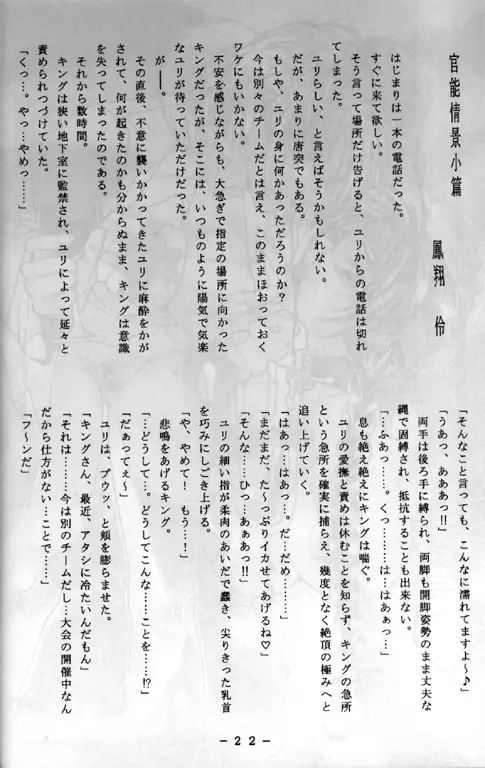 官能情景小篇
鳳翔 伶
はじまりは一本の電話だった。
すぐに来て欲しい。
そう言って場所だけ告げると、ユリからの電話は切れ
てしまった。
ユリらしい、と言えばそうかもしれない。
だが、あまりに唐突でもある。
もしや、ユリの身に何かあっただろうのか？
今は別々のチームだとは言え、このままほおっておく
ワケにもいかない。
不安を感じながらも、大急ぎで指定の場所に向かった
キングだったが、そこには、いつものように陽気で気楽
なユリが待っていただけだった。
が――。
その直後、不意に襲いかかってきたユリに麻酔をかが
されて、何が起きたのかも分からぬまま、キングは意識
を失ってしまったのである。
それから数時間。
キングは狭い地下室に監禁され、ユリによって延々と
責められつづけていた。
「くっ…。やっ…やめっ………」
「そんなこと言っても、こんなに濡れてますよ～♪」
「うあっ、あああっ!!」
両手は後ろ手に縛られ、両脚も開脚姿勢のまま丈夫な
縄で固縛され、抵抗することも出来ない。
「…ふあっ……。くっ………は…はぁぁっ…」
息も絶え絶えにキングは喘ぐ。
ユリの愛撫と責めは休むことを知らず、キングの急所
という急所を確実に捕らえ、幾度となく絶頂の極みへと
追い上げていく。
「はあっ…はあっ…。だ…だめ………」
「まだまだ、た～っぷりイカせてあげるね♡」
「そんな……ひっ…あぁあっ!!」
ユリの細い指が柔肉のあいだで蠢き、尖りきった乳首
を巧みにしごき上げる。
「や、やめて！もう…！」
悲鳴をあげるキング。
「…どうして…。どうしてこんな……ことを……!?」
「だぁってぇ～」
ユリは、プウッ、と頬を膨らませた。
「キングさん、最近、アタシに冷たいんだもん」
「それは………今は別のチームだし…大会の開催中なん
だから仕方がない…ことで……」
「フ～ンだ」
－22－